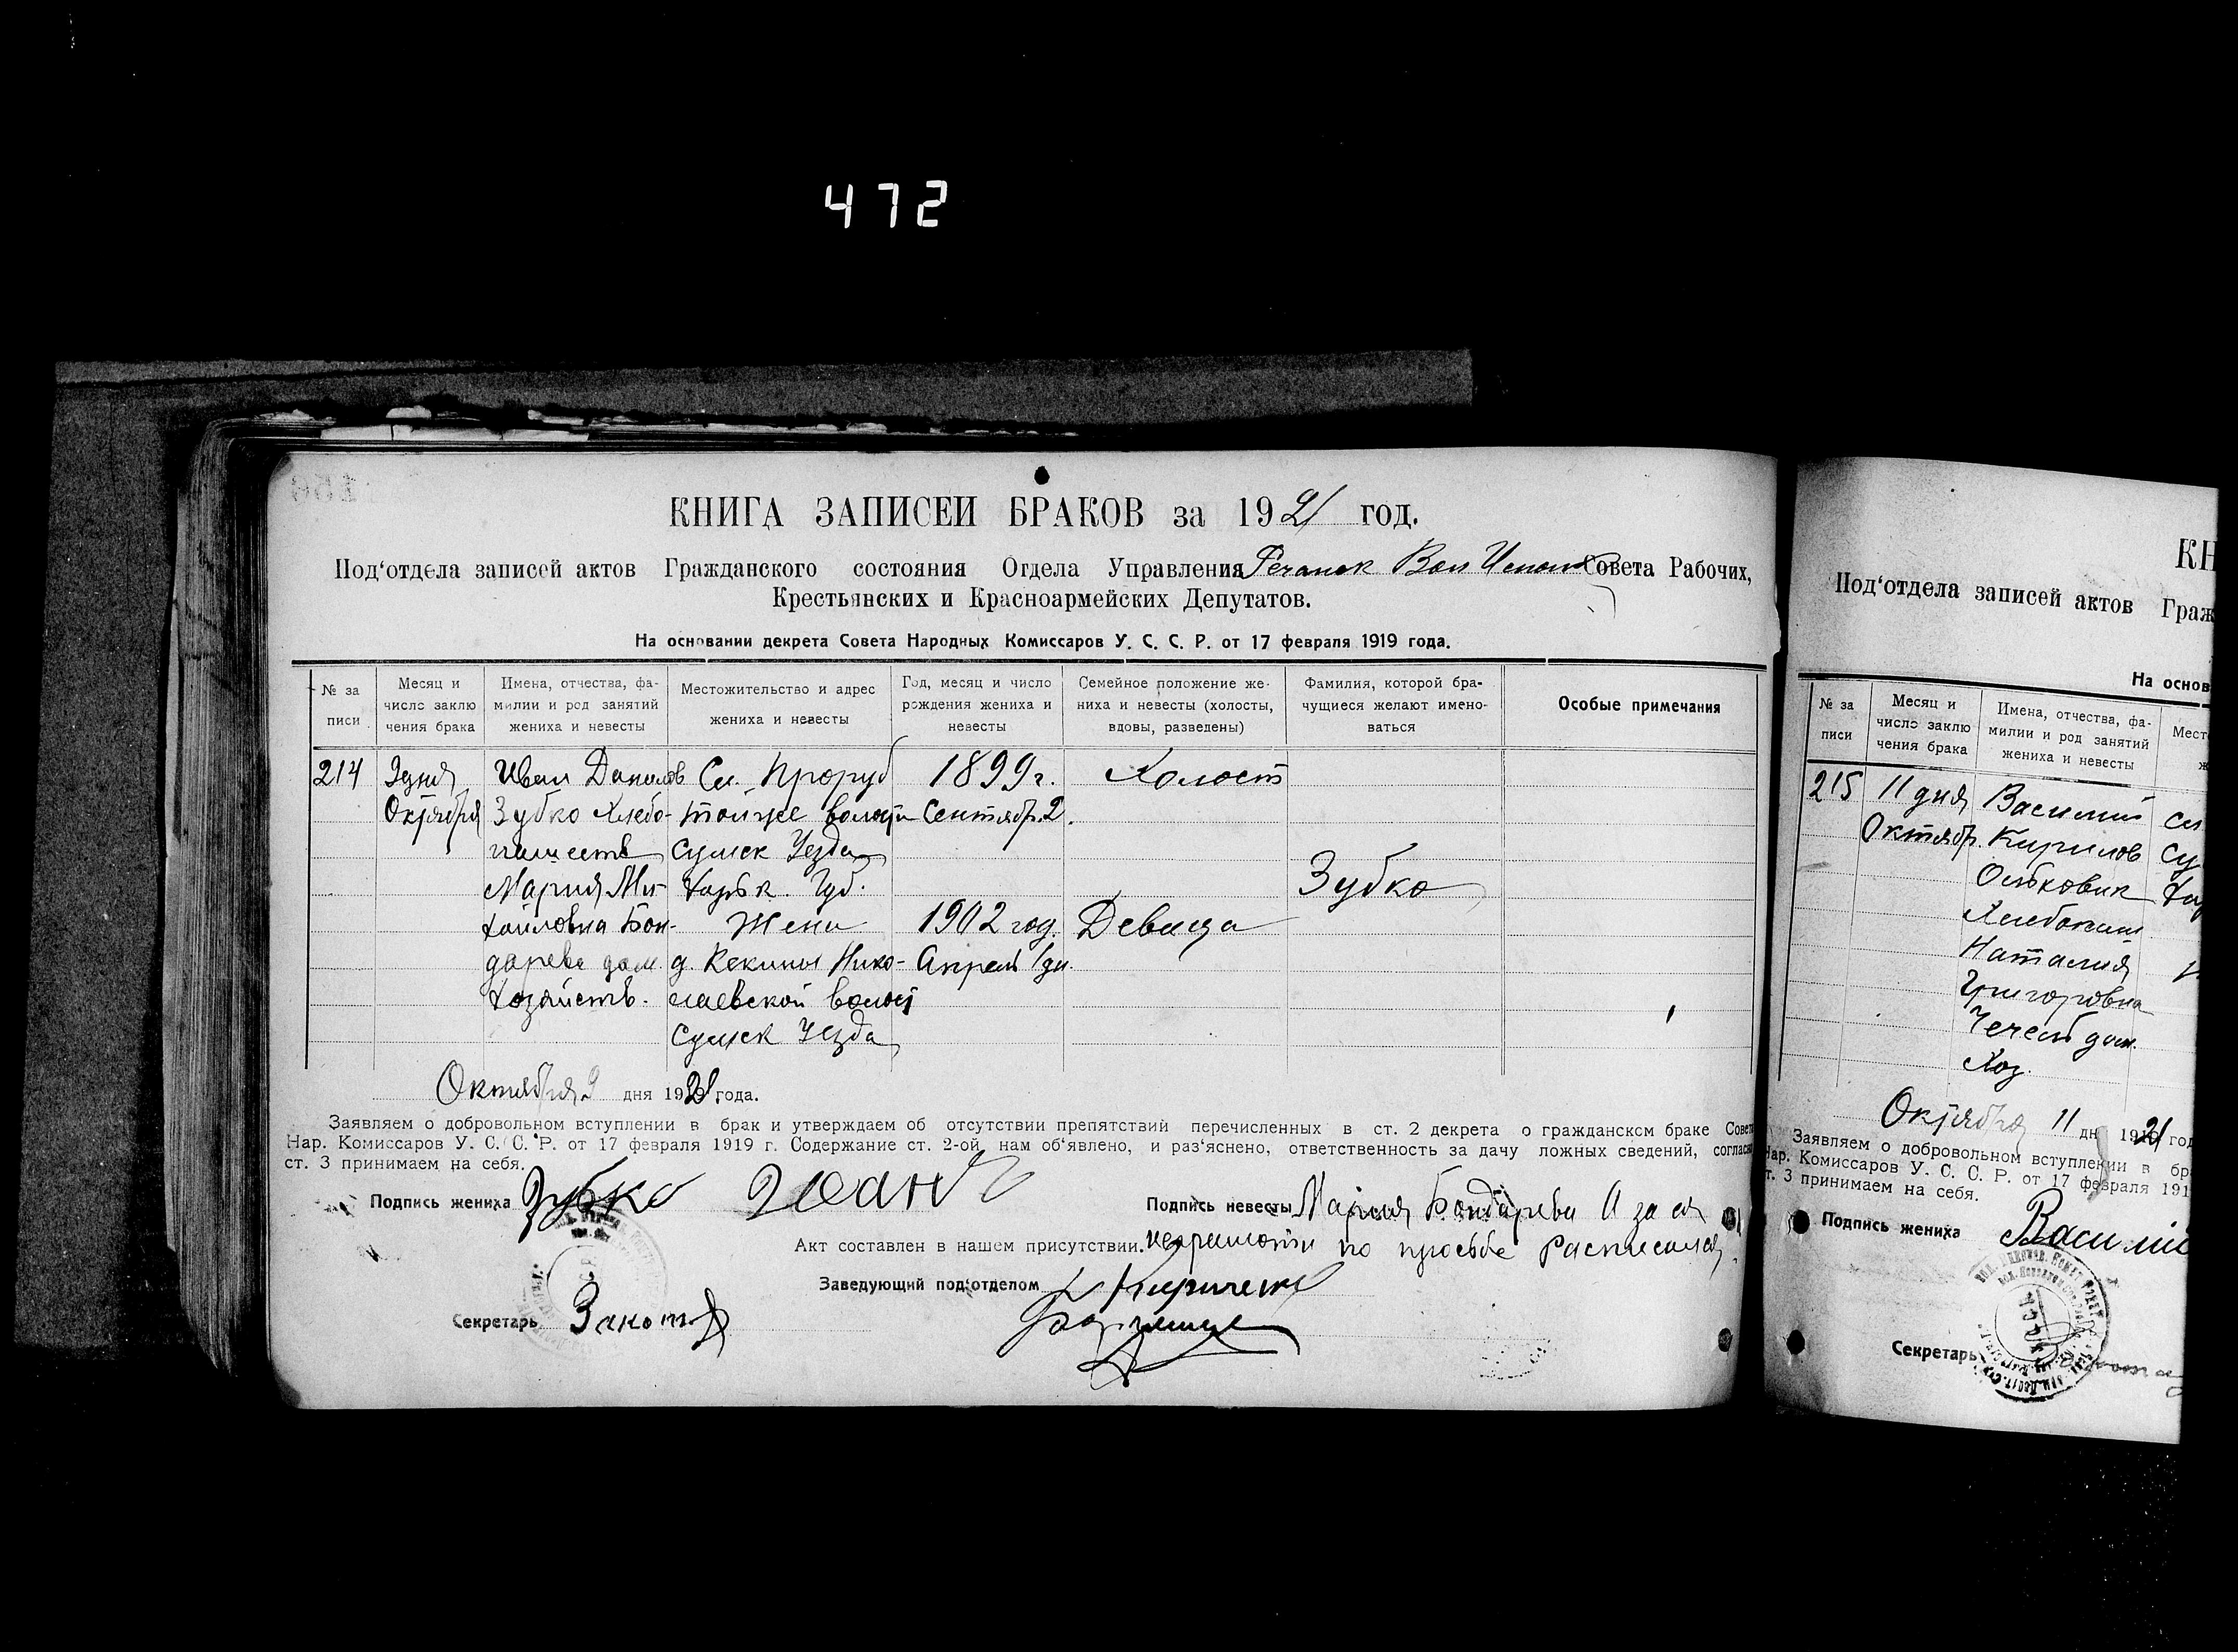 472
КНИГА ЗАПИСЕЙ БРАКОВ за 1921 год.
Под‘отдела записей актов Гражданского состояния Отдела Управления Речанск Вол Исполк Совета Рабочих,
Крестьянских и Красноармейских Депутатов.
На основании декрета Совета Народных Комиссаров У. С. С. Р. от 17 февраля 1919 года.
№ за писи
Месяц и число заклю чения брака
Имена, отчества, фа- милии и род занятий жениха и невесты
Местожительство и адрес жениха и невесты
Год, месяц и число рождения жениха и невесты
Семейное положение же- ниха и невесты (холосты, вдовы, разведены)
Фамилия, которой бра- чущиеся желают имено- ваться
Особые примечания
214 3 дня Иван Данилов Сл. Проруб 1899 г. Холост
Октября Зубко Хлебо- тойже волости Сентябр. 2.
пашеств Сумск Уезда
Мария Ми- Харьк. Губ. Зубко
хайловна Бон- Жени 1902 год. Девица
дарева дом. д. Кекины Нико- Апрель 1 дн.
хозяйств. лаевской волост
Сумск Уезда
Октября 3 дня 1921 года.
Заявляем о добровольном вступлении в брак и утверждаем об отсутствии препятствий перечисленных в ст. 2 декрета о гражданском браке Совета
Нар. Комиссаров У. С. С. Р. от 17 февраля 1919 г. Содержание ст. 2-ой, нам об‘явлено, и раз‘яснено, ответственность за дачу ложных сведений, согласно
ст. 3 принимаем на себя.
Подпись жениха Зубко Иван Подпись невесты Мария Бондарева А за ея
Акт составлен в нашем присутствии. неграмотн по просьбе Расписался
Заведующий под‘отделом Кириченко
Секретарь
КН
Под‘отдела записей актов Граж
На основ
№ за писи
Месяц и число заклю чения брака
Имена, отчества, фа- милии и род занятий жениха и невесты
Мест
ж
215 11 дня Василий Сл
Октябр. Кирилов Су
Ольховик Хар
Хлебопаш
Наталия
Григоровна
дом.
Хоз.
Октября 11 дня 1921 год
Заявляем о добровольном вступлении в бра
Нар. Комиссаров У. С. С. Р. от 17 февраля 191
ст. 3 принимаем на себя.
Подпись жениха Василий
Секретарь